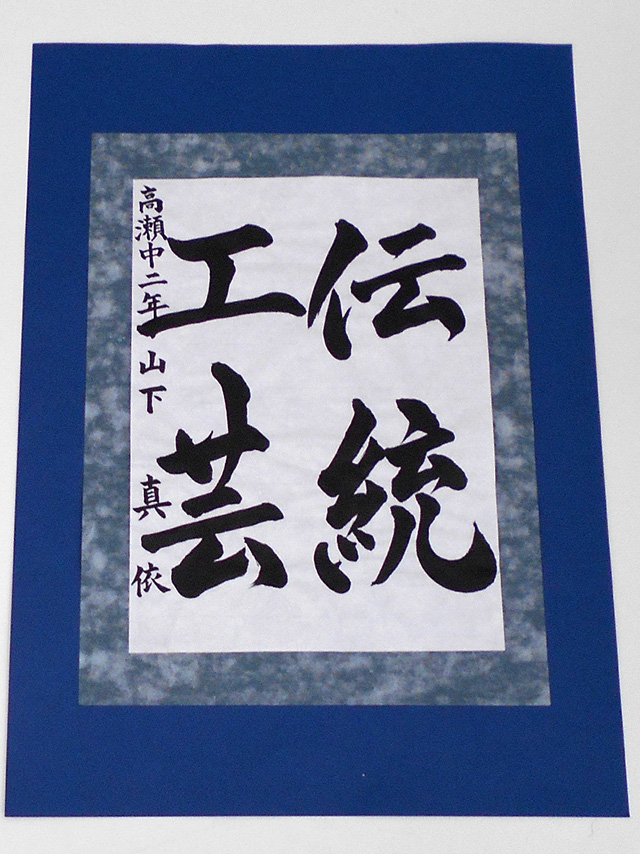 伝統
工芸
高瀬中二年 山下 真依